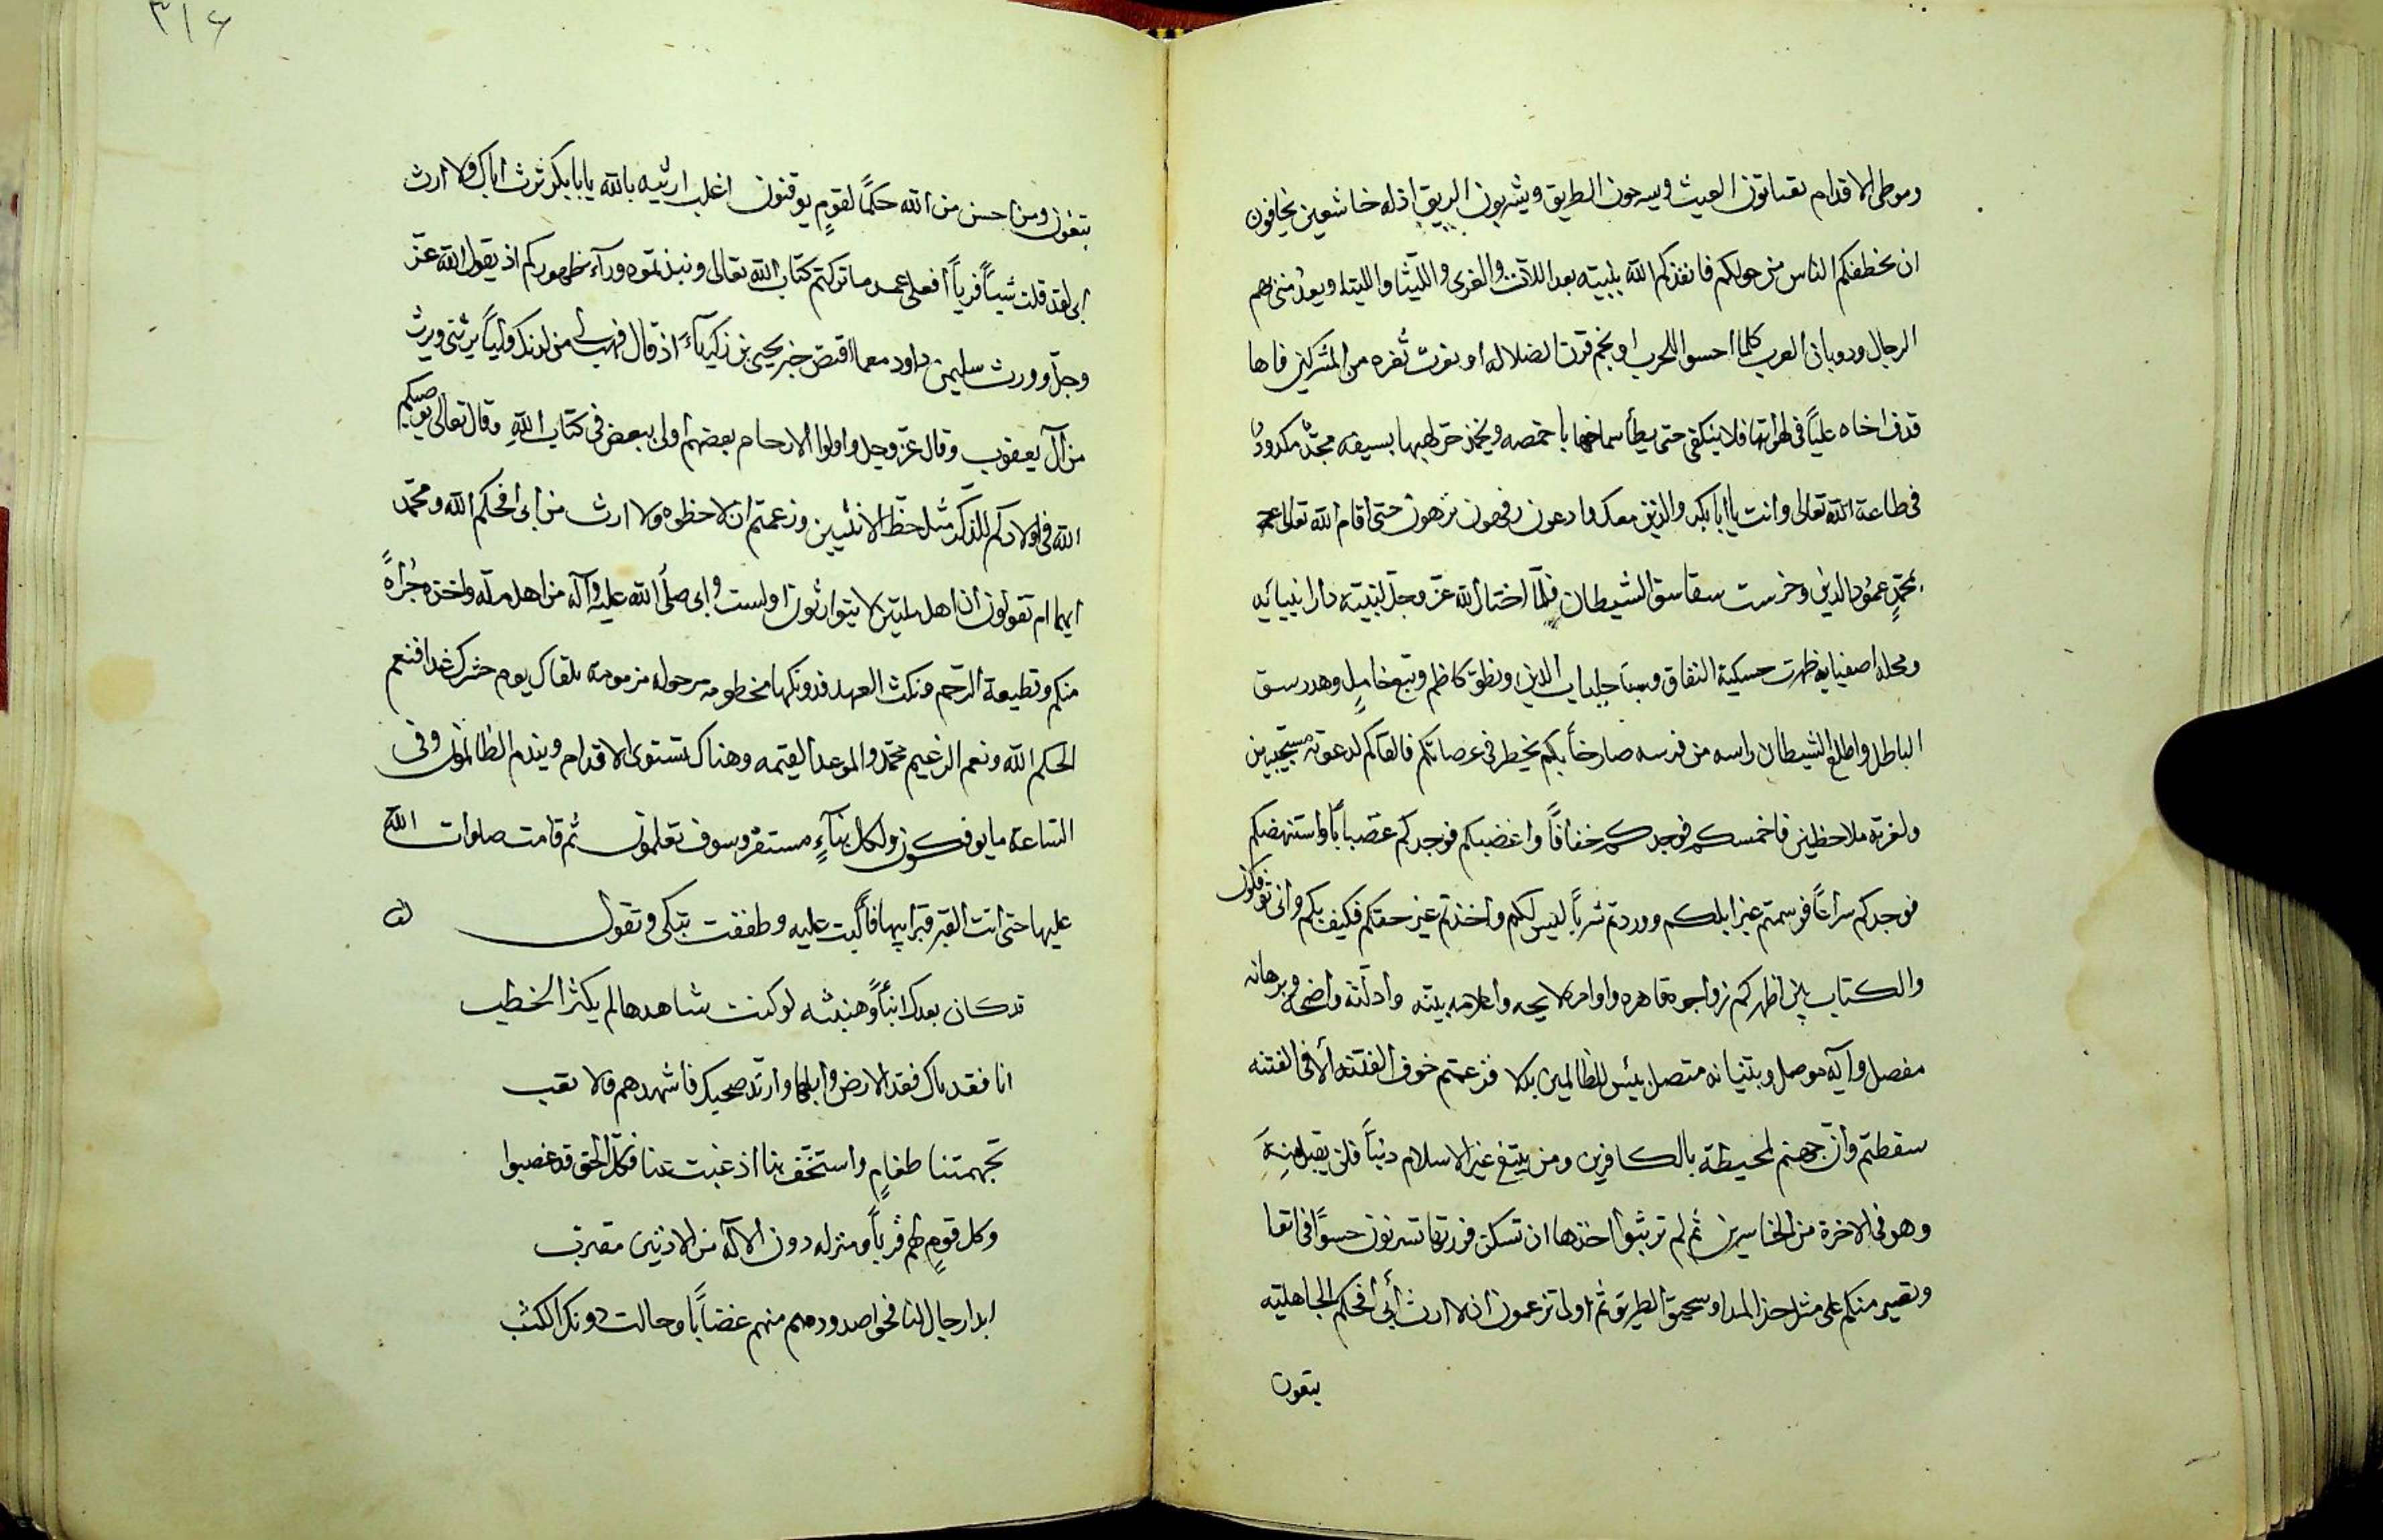 وموطى الاقدام تقتاتون العيث وبسرحون الطريق ويشربون الريق اذله خاشعين يخافون
ان يخطفكم الناس من حولكم فانقذكم الله بلبيته بعد اللآت والعزى واللّتيا والليتا وبعد منى بهم
الرجال وذوبان العرب كلما احسوا للحرب او نجم قرن لضلاله او نغرت ثغره من المشركين فاها
قذف اخاه عليّاً فى لهواتها فلا ينكفى حتى يطأ سماخها باخمصه ويخمد حر لهبها بسيفه مجدّ مكدودٌ
فى طاعة الله تعالى وانت يا ابابكر والذين معك وادعون رفهون نزهون حتى اقام الله تعالى
بمحمّدٍ عمود الدين وخرست سقاسق الشيطان فلمّا اختار الله عزّ وجلّ لنبيّه دار انبيائه
ومحله اصفيايه ظهرت حسيكة النفاق وسبا جلباب الدين ونطق كاظم ونبع خامل وهدر سق
الباطل واطلع الشيطان راسه من فرسه صارخاً بكم يخطر فى عرصاتكم فالفاكم لدعوته مستجيبين
ولغرته ملاحظين فاخمسكم فوجدكم خفافاً واغضبكم فوجدكم غضباباً واستنهضكم
فوجدكم سراعاً فوسمتم غير ابلكم ووردتم شرباً ليس لكم واخذتم غير حقكم فكيف بكم وانى تؤفكون
والكتاب بين اظهركم زواجره قاهره واوامره لايحه واعلامه بينه وادلّته واضحه وبرهانه
مفصل وآيه موصل وبنيانه متصل بئس للظالمين بدلا فزعمتم خوف الفتنه ألا فى الفتنه
سقطتم وانّ جهنم لمحيطة بالكافرين ومن يبتغ غير الاسلام ديناً فلن يقبل منه
وهو فى الاخرة من الخاسرين ثم لم تربثوا اختها ان تسكن فورتها تسرون حسوّا فى اتغا
ونصبر منكم على مثل حز المدا وسحيق الطريق ثم اولى تزعمون ان لا ارث أبى افحكم الجاهليّه
يبتغون
يبتغون ومن احسن من الله حكماً لقومٍ يوقنون اغلب ارثيه بالله يا بابكر ترث اباك ولا ارث
ابى لقد قلت شيئاً فرياً أفعلى عمد ما تركتم كتاب الله تعالى ونبذتموه ورآء ظهوركم اذ يقول الله عزّ
وجلّ وورث سليمن داود مع ما اقتص خبر يحيى بن زكرياءً اذ قال فهب لى من لدنك ولياً يرثنى ويرث
من آل يعقوب وقال عزّ وجل واولوا الارحام بعضهم اولى ببعض فى كتاب الله وقال تعالى يوصيكم
الله فى اولادكم للذكر مثل حظ الانثيين وزعمتم ان لا حظوه ولا ارث من ابى افحكم الله ومحمّد
ايهما ام تقولون ان اهل ملتين لا يتوارثون اولست وابى صلّى الله عليه وآله من اهل ملّه واحده جُرأةً
منكم وقطيعة الرّحم ونكث العهد فدونكها مخطومه مرحوله مزمومه تلقاك يوم حشرك غدا فنعم
الحكم الله ونعم الزعيم محمّد والموعد القيمه وهناك تستوى الاقدام ويندم الظالمون وفى
الساعة ما يوفكون ولكل نبآءٍ مستقر وسوف تعلمون ثم قامت صلوات الله
عليها حتى اتت القبر قبر ابيها فاكبت عليه وطفقت تبكى وتقول
قد كان بعدك انبآءً وهنبثه لو كنت شاهدها لم يكثر الخطب
انا فقدناك فقد الارض وابلها وارتد صحبك فاشهدهم فالا نقب
تجهمتنا طغامٍ واستخف بنا اذ غبت عنا فكل الحق قد غصبوا
وكل قومٍ لهم قرباً ومنزله دون الآله من الادنين مقترب
ابدا رجال لنا فحوا صدورهم منهم غضاباً وحالت دونك الكثب
٣١٦